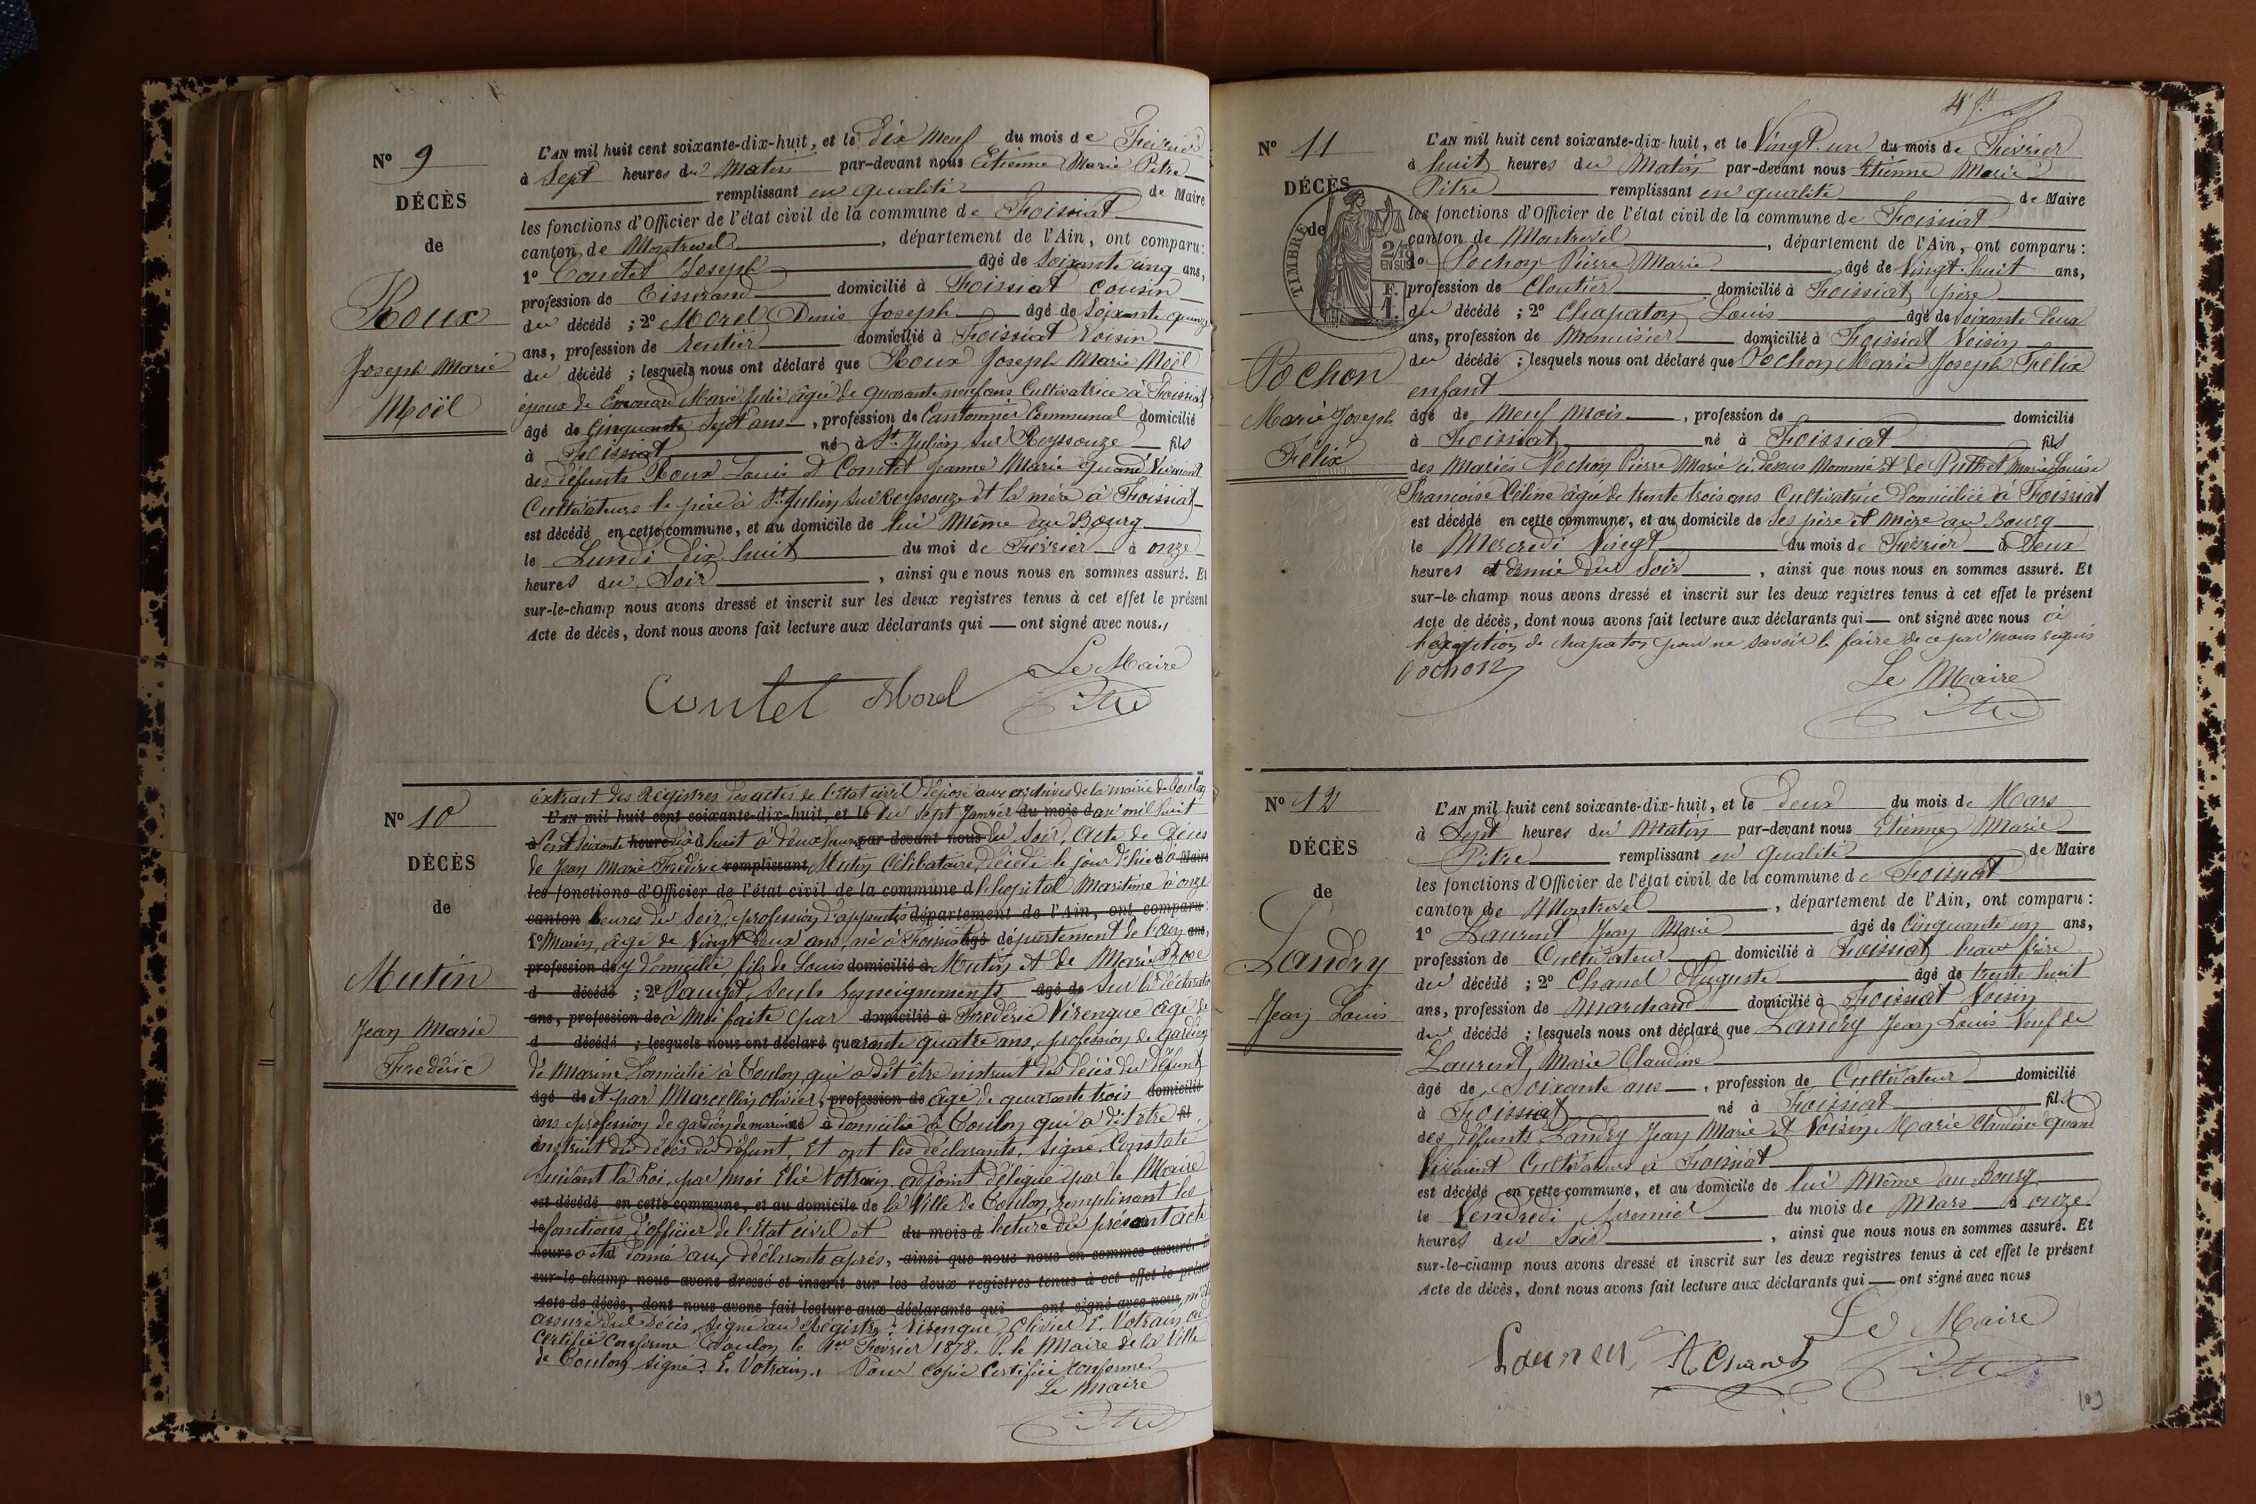 N° 9
DÉCÈS
de
Roux
Joseph Marie
Moël
L'AN mil huit cent soixante-dix-huit, et le dix neuf du mois de Février
à Sept heures du Matin par-devant nous Etienne Marie Pitre
remplissant en qualité de Maire
les fonctions d'Officier de l'état civil de la commune de Foissiat
canton de Montrevel, département de l'Ain, ont comparu:
1° Contet Joseph âgé de Soixante cinq ans,
profession de Tisserand domicilié à Foissiat cousin
du décédé ; 2° Morel Denis Joseph âgé de Soixante quinze
ans, profession de rentier domicilié à Foissiat Voisin
du décédé ; lesquels nous ont déclaré que Roux Joseph Marie Moël
époux de Marie Julie âgée de quarante neuf ans Cultivatrice à Foissiat
âgé de Cinquante Sept ans, profession de Cantonnier Communal domicilié
à Foissiat né à St Julien sur Reyssouze fils
des défunts Roux Louis et Contet Jeanne Marie quand Vivaient
Cultivateurs le père à St Julien sur Reyssouze et la mère à Foissiat
est décédé en cette commune, et au domicile de lui Même au Bourg
le Lundi dix huit du moi de Février à onze
heures du Soir, ainsi que nous nous en sommes assuré. Et
sur-le-champ nous avons dressé et inscrit sur les deux registres tenus à cet effet le présent
Acte de décès, dont nous avons fait lecture aux déclarants qui ont signé avec nous.
Le Maire
Contet Morel Pitre
N° 10
DÉCÈS
de
Mutin
Jean Marie
Frédéric
Extrait des Registres des actes de l'Etat civil déposé aux archives de la mairie de Toulon
L'AN mil huit cent soixante-dix-huit, et le du Sept Janvier du mois d an mil huit
à Cent Soixante heure dix huit à deux heures par-devant nous du Soir, Acte de Décès
de Jean Marie Frédéric remplissant Mutin Célibataire, décédé le jour d'hier à Maire
les fonctions d'Officier de l'état civil de la commune d l'hopital Maritime à onze
canton heures du Soir, profession d'apprentis département de l'Ain, ont comparu:
1° Marin, âgé de Vingt deux ans, né à Foissiat âgé département de l'ain ans,
profession de y domicilié, fils de Louis domicilié à Mutin et de Marie Rose
d décédé ; 2° Pauget, Seuls renseignements âgé de Sur la déclaration
ans, profession de à Moi faite par domicilié à Frédéric Virenque âgé de
d décédé ; lesquels nous ont déclaré quarante quatre ans, profession de gardien
de Marine domicilié à Toulon qui a dit être instruit du décès du défunt
âgé de et par Marcellin Olivier, profession de âgé de quarante trois domicilié
ans profession de gardien de marine né à domicilié à Toulon qui a dit être fil
instruit du décès du défunt. Et ont les déclarants, Signé. Constaté
Suivant la Loi, par moi Elie Votrain adjoint délégué par le Maire
est décédé en cette commune, et au domicile de la Ville de Toulon, remplissant les
le fonctions d'officier de l'Etat civil et du mois d lecture du présent acte
heure a été donné aux déclarants après, ainsi que nous nous en sommes assuré.
sur-le-champ nous avons dressé et inscrit sur les deux registres tenus à cet effet le présent
Acte de décès, dont nous avons fait lecture aux déclarants qui ont signé avec nous,
assuré du décès. Signé au Registre: Virenque, Olivier E. Votrain
Certifié Conforme Toulon le 1er Février 1878. P. le Maire de la Ville
de Toulon, Signé: E. Votrain. Pour copie Certifiée Conforme
Le Maire
Pitre
N° 11
DÉCÈS
de
TIMBRE
2/10
EN SUS
F.
1.
Pochon
Marie Joseph
Félix
L'AN mil huit cent soixante-dix-huit, et le Vingt un du mois de Février
à huit heures du Matin par-devant nous Etienne Marie
Pitre remplissant en qualité de Maire
les fonctions d'Officier de l'état civil de la commune de Foissiat
canton de Montrevel, département de l'Ain, ont comparu:
1° Pochon Pierre Marie âgé de Vingt-huit ans,
profession de Cloutier domicilié à Foissiat père
du décédé ; 2° Chapaton Louis âgé de Soixante deux
ans, profession de Menuisier domicilié à Foissiat Voisin
du décédé ; lesquels nous ont déclaré que Pochon Marie Joseph Félix
enfant
âgé de Neuf Mois, profession de domicilié
à Foissiat né à Foissiat fils
des Mariés Pochon Pierre Marie ci-dessus Nommé et de Puthet Marie Louise
Françoise Céline âgée de trente trois ans Cultivatrice domiciliée à Foissiat
est décédé en cette commune, et au domicile de Ses père et Mère au Bourg
le Mercredi Vingt du mois de Février à Deux
heures et demie du Soir, ainsi que nous nous en sommes assuré. Et
sur-le-champ nous avons dressé et inscrit sur les deux registres tenus à cet effet le présent
Acte de décès, dont nous avons fait lecture aux déclarants qui ont signé avec nous à
l'exception de Chapaton pour ne savoir le faire de ce par nous requis
Pochon Le Maire
Pitre
N° 12
DÉCÈS
de
Landry
Jean Louis
L'AN mil huit cent soixante-dix-huit, et le deux du mois de Mars
à Sept heures du Matin par-devant nous Etienne Marie
Pitre remplissant en qualité de Maire
les fonctions d'Officier de l'état civil de la commune de Foissiat
canton de Montrevel, département de l'Ain, ont comparu:
1° Laurent Jean Marie âgé de Cinquante un ans,
profession de Cultivateur domicilié à Foissiat beau frère
du décédé ; 2° Chanel Auguste âgé de trente huit
ans, profession de Marchand domicilié à Foissiat Voisin
du décédé ; lesquels nous ont déclaré que Landry Jean Louis Veuf de
Laurent, Marie Claudine
âgé de Soixante ans, profession de Cultivateur domicilié
à Foissiat né à Foissiat fils
des défunts Landry Jean Marie et Voisin Marie Claudine quand
Vivaient Cultivateurs à Foissiat
est décédé en cette commune, et au domicile de lui Même au Bourg
le Vendredi premier du mois de Mars à onze
heures du Soir, ainsi que nous nous en sommes assuré. Et
sur-le-champ nous avons dressé et inscrit sur les deux registres tenus à cet effet le présent
Acte de décès, dont nous avons fait lecture aux déclarants qui ont signé avec nous
Le Maire
Laurent A Chanel Pitre
109